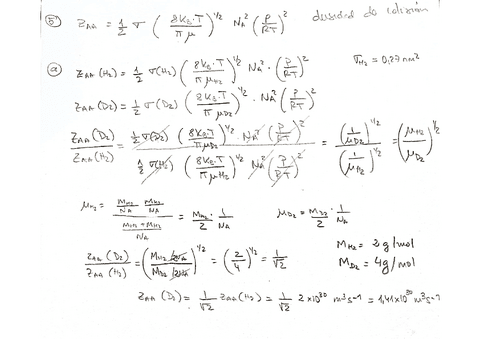 5) Z_AA = 1/2 σ (8K_B·T / πμ)^1/2 N_A² (P/RT)² densidad de colisión
a) Z_AA(H₂) = 1/2 σ(H₂) (8K_B·T / πμ_H₂)^1/2 N_A² · (P/RT)² σ_H₂ = 0,27 nm²
Z_AA(D₂) = 1/2 σ(D₂) (8K_B·T / πμ_D₂)^1/2 · N_A² (P/RT)²
Z_AA(D₂) / Z_AA(H₂) = 1/2 σ(D₂) (8K_B·T / πμ_D₂)^1/2 · N_A² · (P/RT)² / 1/2 σ(H₂) (8K_B·T / πμ_H₂)^1/2 N_A² (P/RT)² = (1/μ_D₂)^1/2 / (1/μ_H₂)^1/2 = (μ_H₂ / μ_D₂)^1/2
μ_H₂ = (M_H₂/N_A · M_H₂/N_A) / ((M_H₂ + M_H₂)/N_A) = M_H₂/2 · 1/N_A μ_D₂ = M_D₂/2 · 1/N_A
Z_AA(D₂) / Z_AA(H₂) = (M_H₂ 2N_A / M_D₂ 2N_A)^1/2 = (2/4)^1/2 = 1/√2 M_H₂ = 2g/mol
M_D₂ = 4g/mol
Z_AA(D₂) = 1/√2 Z_AA(H₂) = 1/√2 2×10³⁰ m³s⁻¹ = 1,41×10³⁰ m³s⁻¹